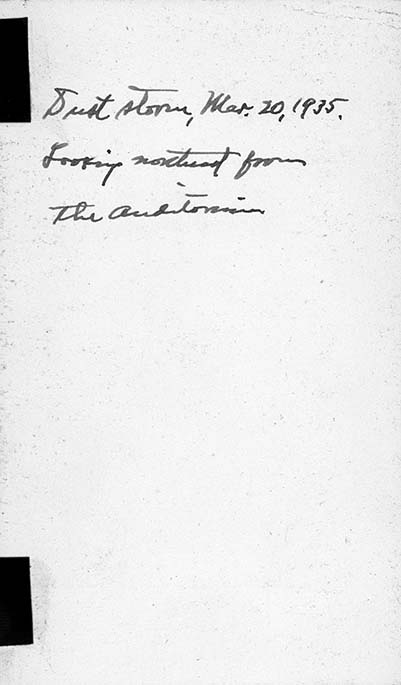 Dust storm, Mar. 20, 1935.
Looking northeast from
The Auditorium